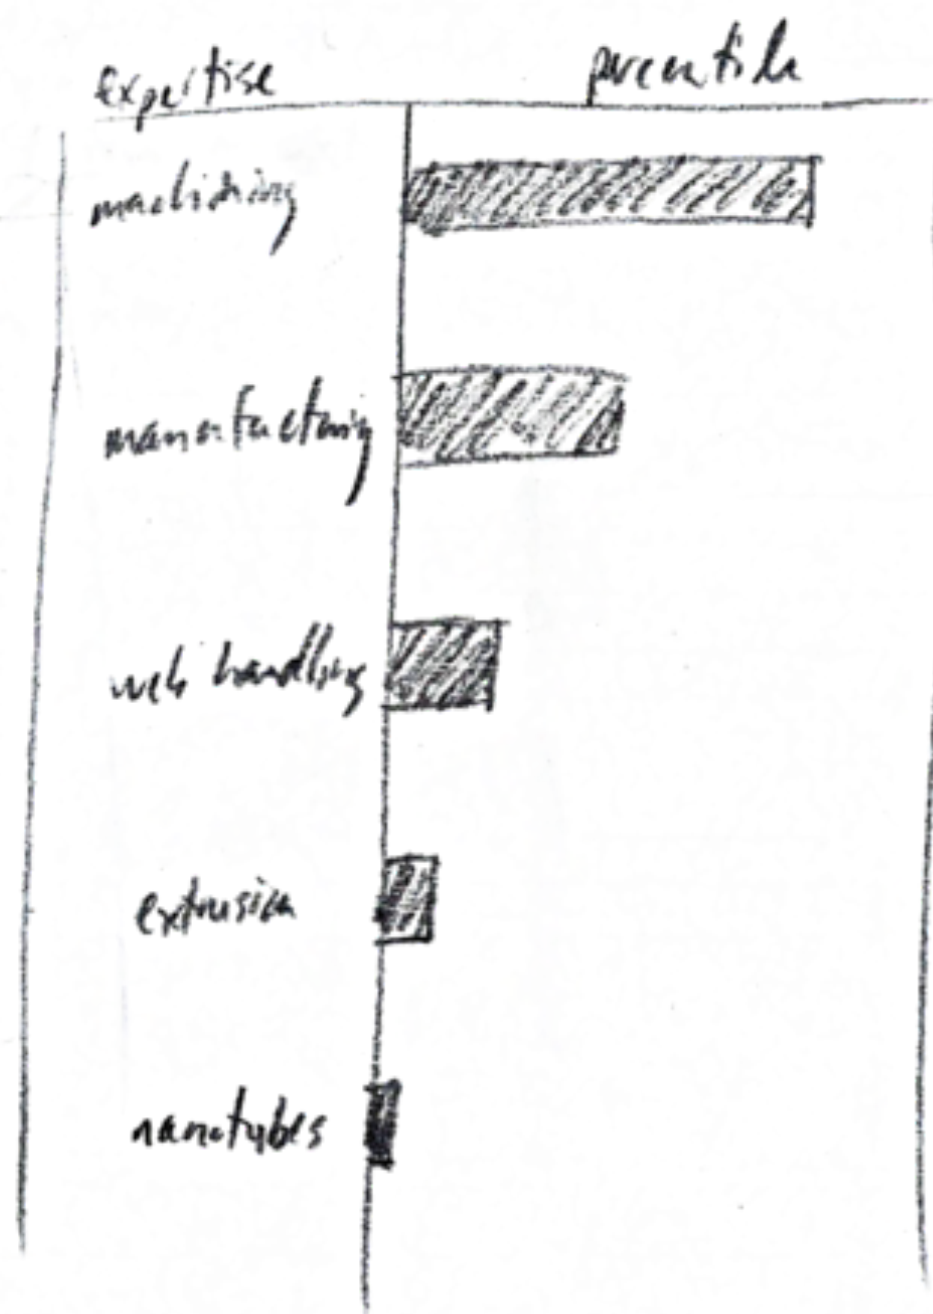 expertise percentile
machining
manufacturing
web handling
extrusion
nanotubes